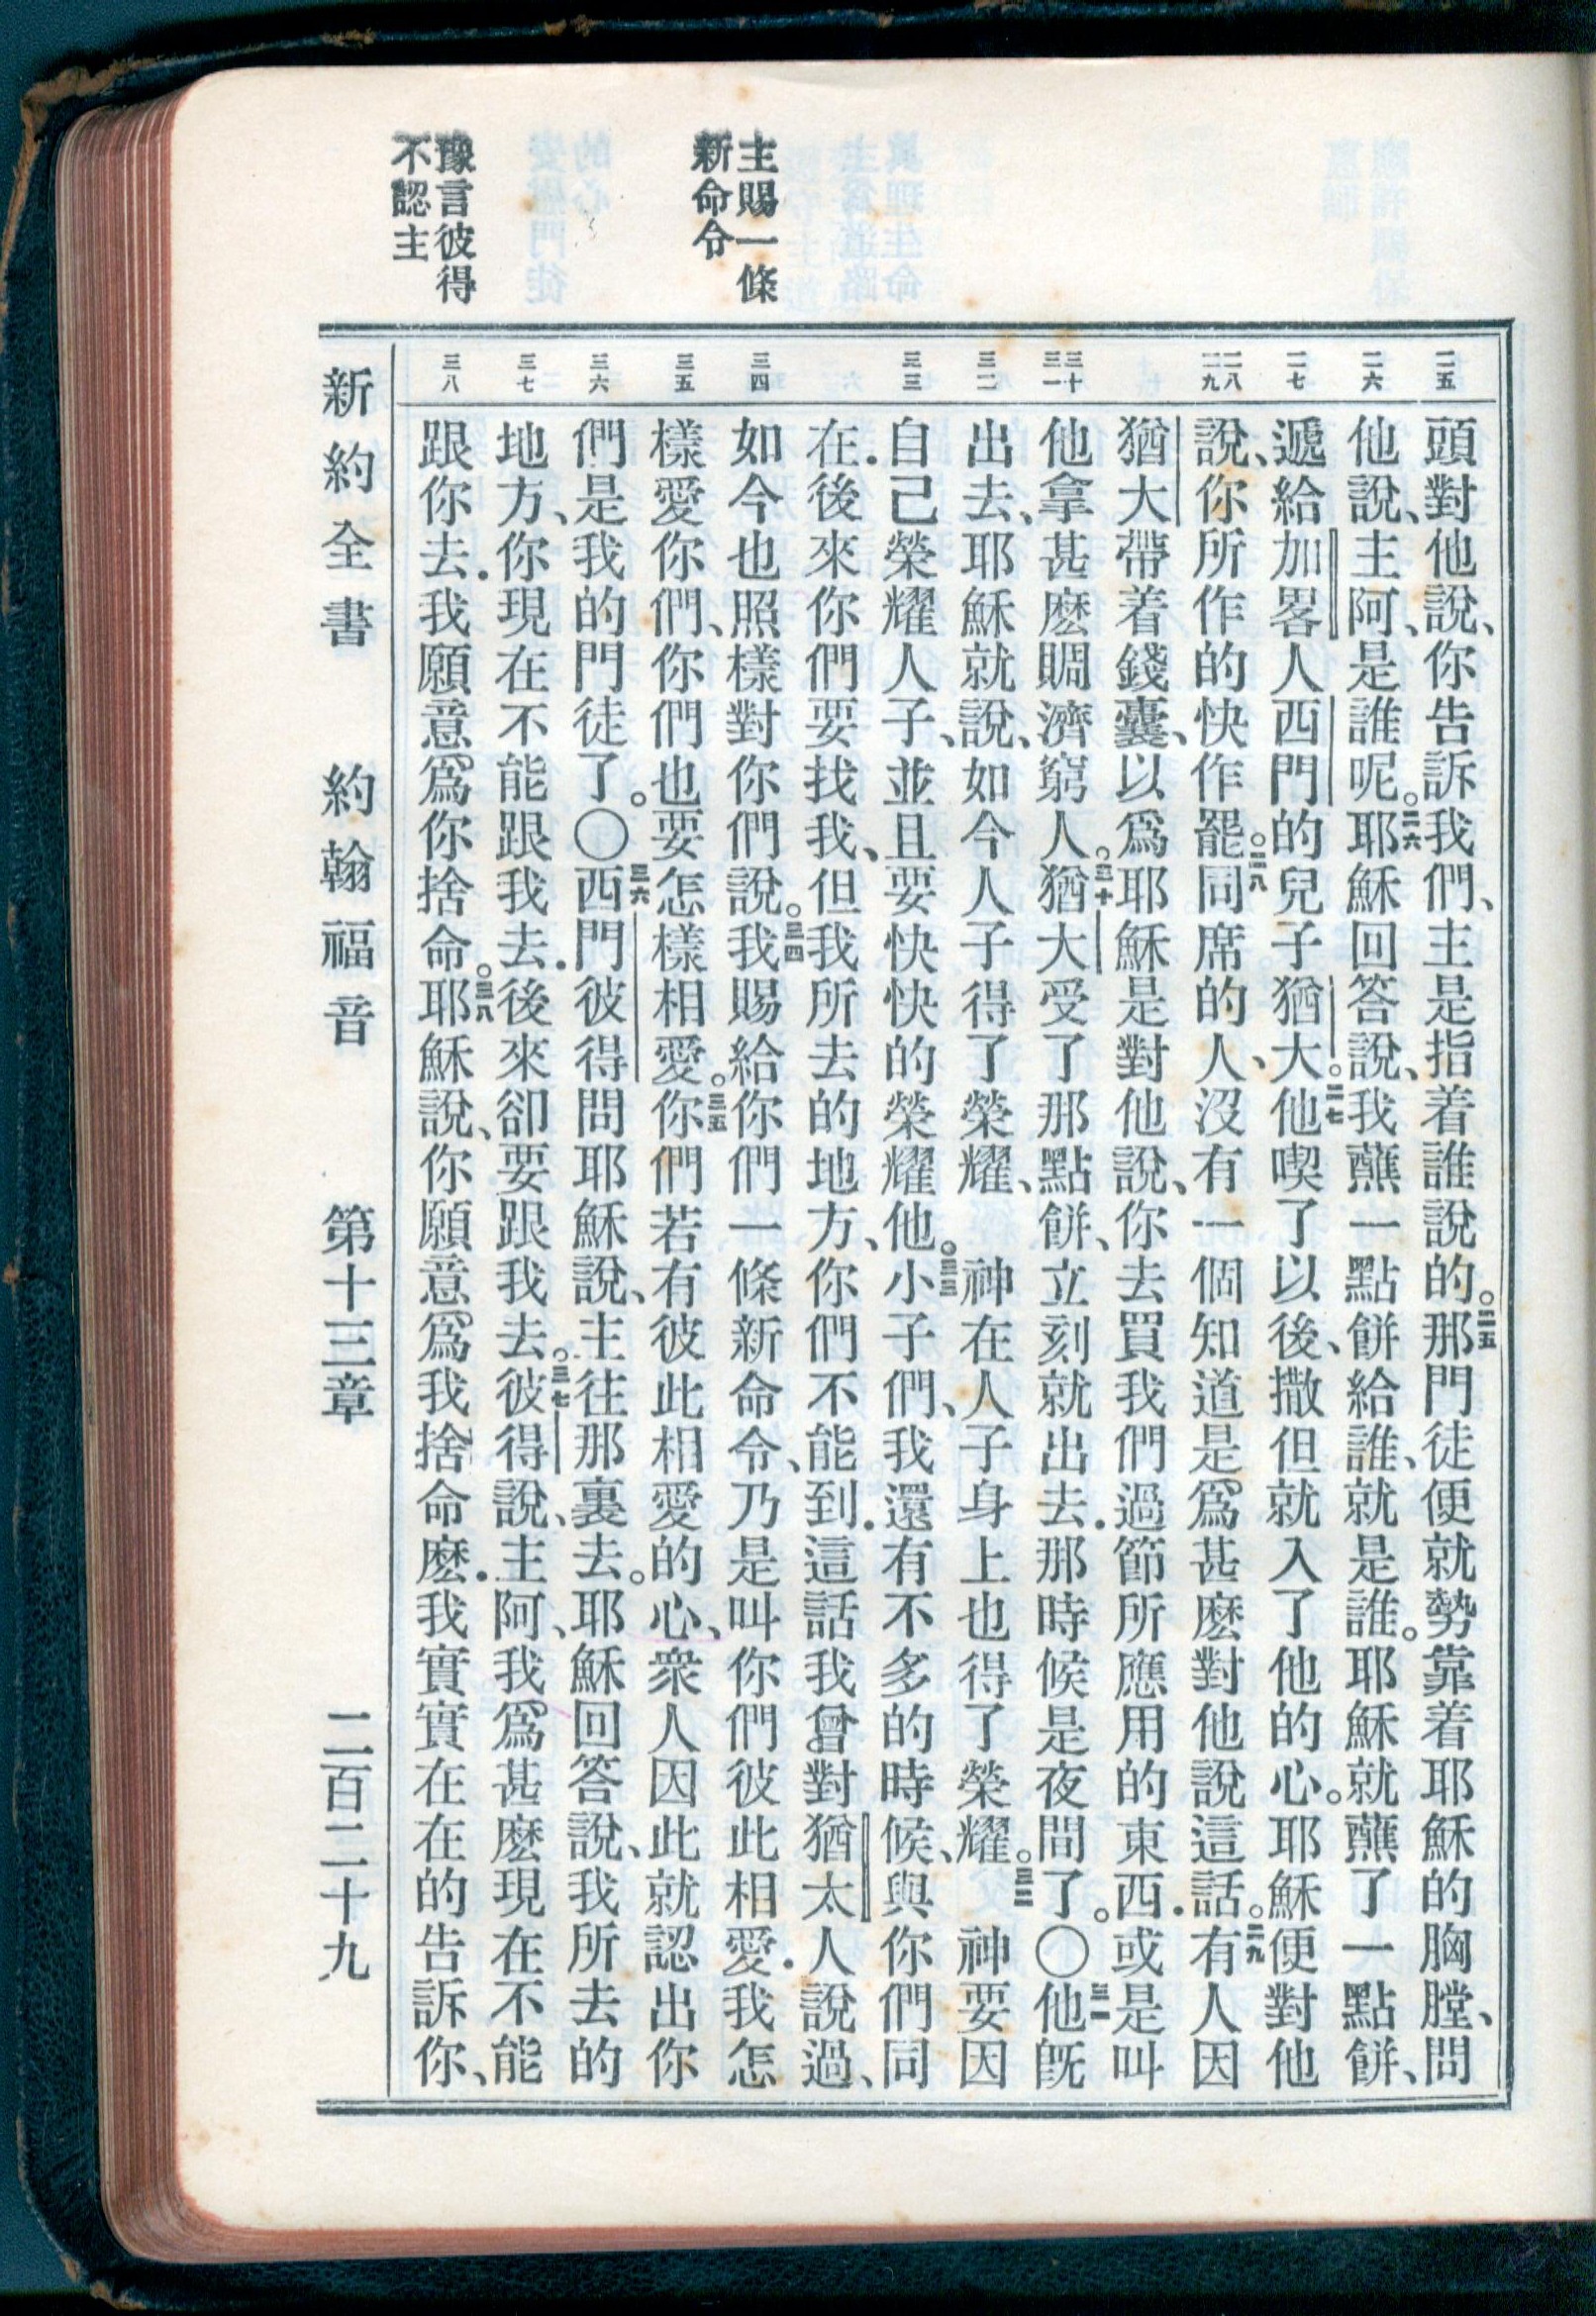 主賜一條
新命令
豫言彼得
不認主
二五
二六
二七
二八
二九
三十
三一
三二
三三
三四
三五
三六
三七
三八
頭對他說、你告訴我們、主是指着誰說的。二五那門徒便就勢靠着耶穌的胸膛、問
他說、主阿、是誰呢。二六耶穌回答說、我蘸一點餅給誰、就是誰。耶穌就蘸了一點餅、
遞給加畧人西門的兒子猶大。二七他喫了以後、撒但就入了他的心。耶穌便對他
說、你所作的快作罷。二八同席的人、沒有一個知道是爲甚麽對他說這話。二九有人因
猶大帶着錢囊、以爲耶穌是對他說、你去買我們過節所應用的東西.或是叫
他拿甚麽賙濟窮人。三十猶大受了那點餅、立刻就出去.那時候是夜間了。〇三一他旣
出去、耶穌就說、如今人子得了榮耀、 神在人子身上也得了榮耀。三二 神要因
自己榮耀人子、並且要快快的榮耀他。三三小子們、我還有不多的時候、與你們同
在.後來你們要找我、但我所去的地方、你們不能到.這話我曾對猶太人說過、
如今也照樣對你們說。三四我賜給你們一條新命令、乃是叫你們彼此相愛.我怎
樣愛你們、你們也要怎樣相愛。三五你們若有彼此相愛的心、衆人因此就認出你
們是我的門徒了。〇三六西門彼得問耶穌說、主往那裏去。耶穌回答說、我所去的
地方、你現在不能跟我去.後來卻要跟我去。三七彼得說、主阿、我爲甚麽現在不能
跟你去.我願意爲你捨命。三八耶穌說、你願意爲我捨命麽.我實實在在的告訴你、
新約全書 約翰福音 第十三章 二百二十九